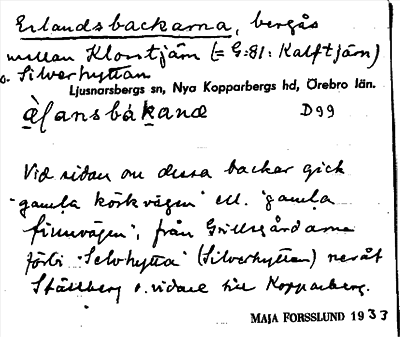 Erlandsbackarna, bergås
mellan Klosstjärn (= G:81: Kalftjärn)
o. Silverhyttan
Ljusnarsbergs sn, Nya Kopparbergs hd, Örebro län.
D99
Vid sidan om dessa backar gick
"gamla körkvägen" ell. "gamla
finnvägen", från Grillsgårdarna
förbi "Selvhytta" (Silverhyttan) neråt
Ställberg o. vidare till Kopparberg.
MAJA FORSSLUND 1933